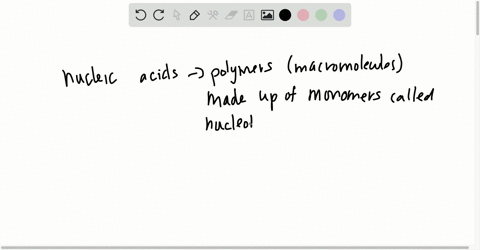 nucleic acids → polymers (macromolecules)
made up of monomers called
nucleot